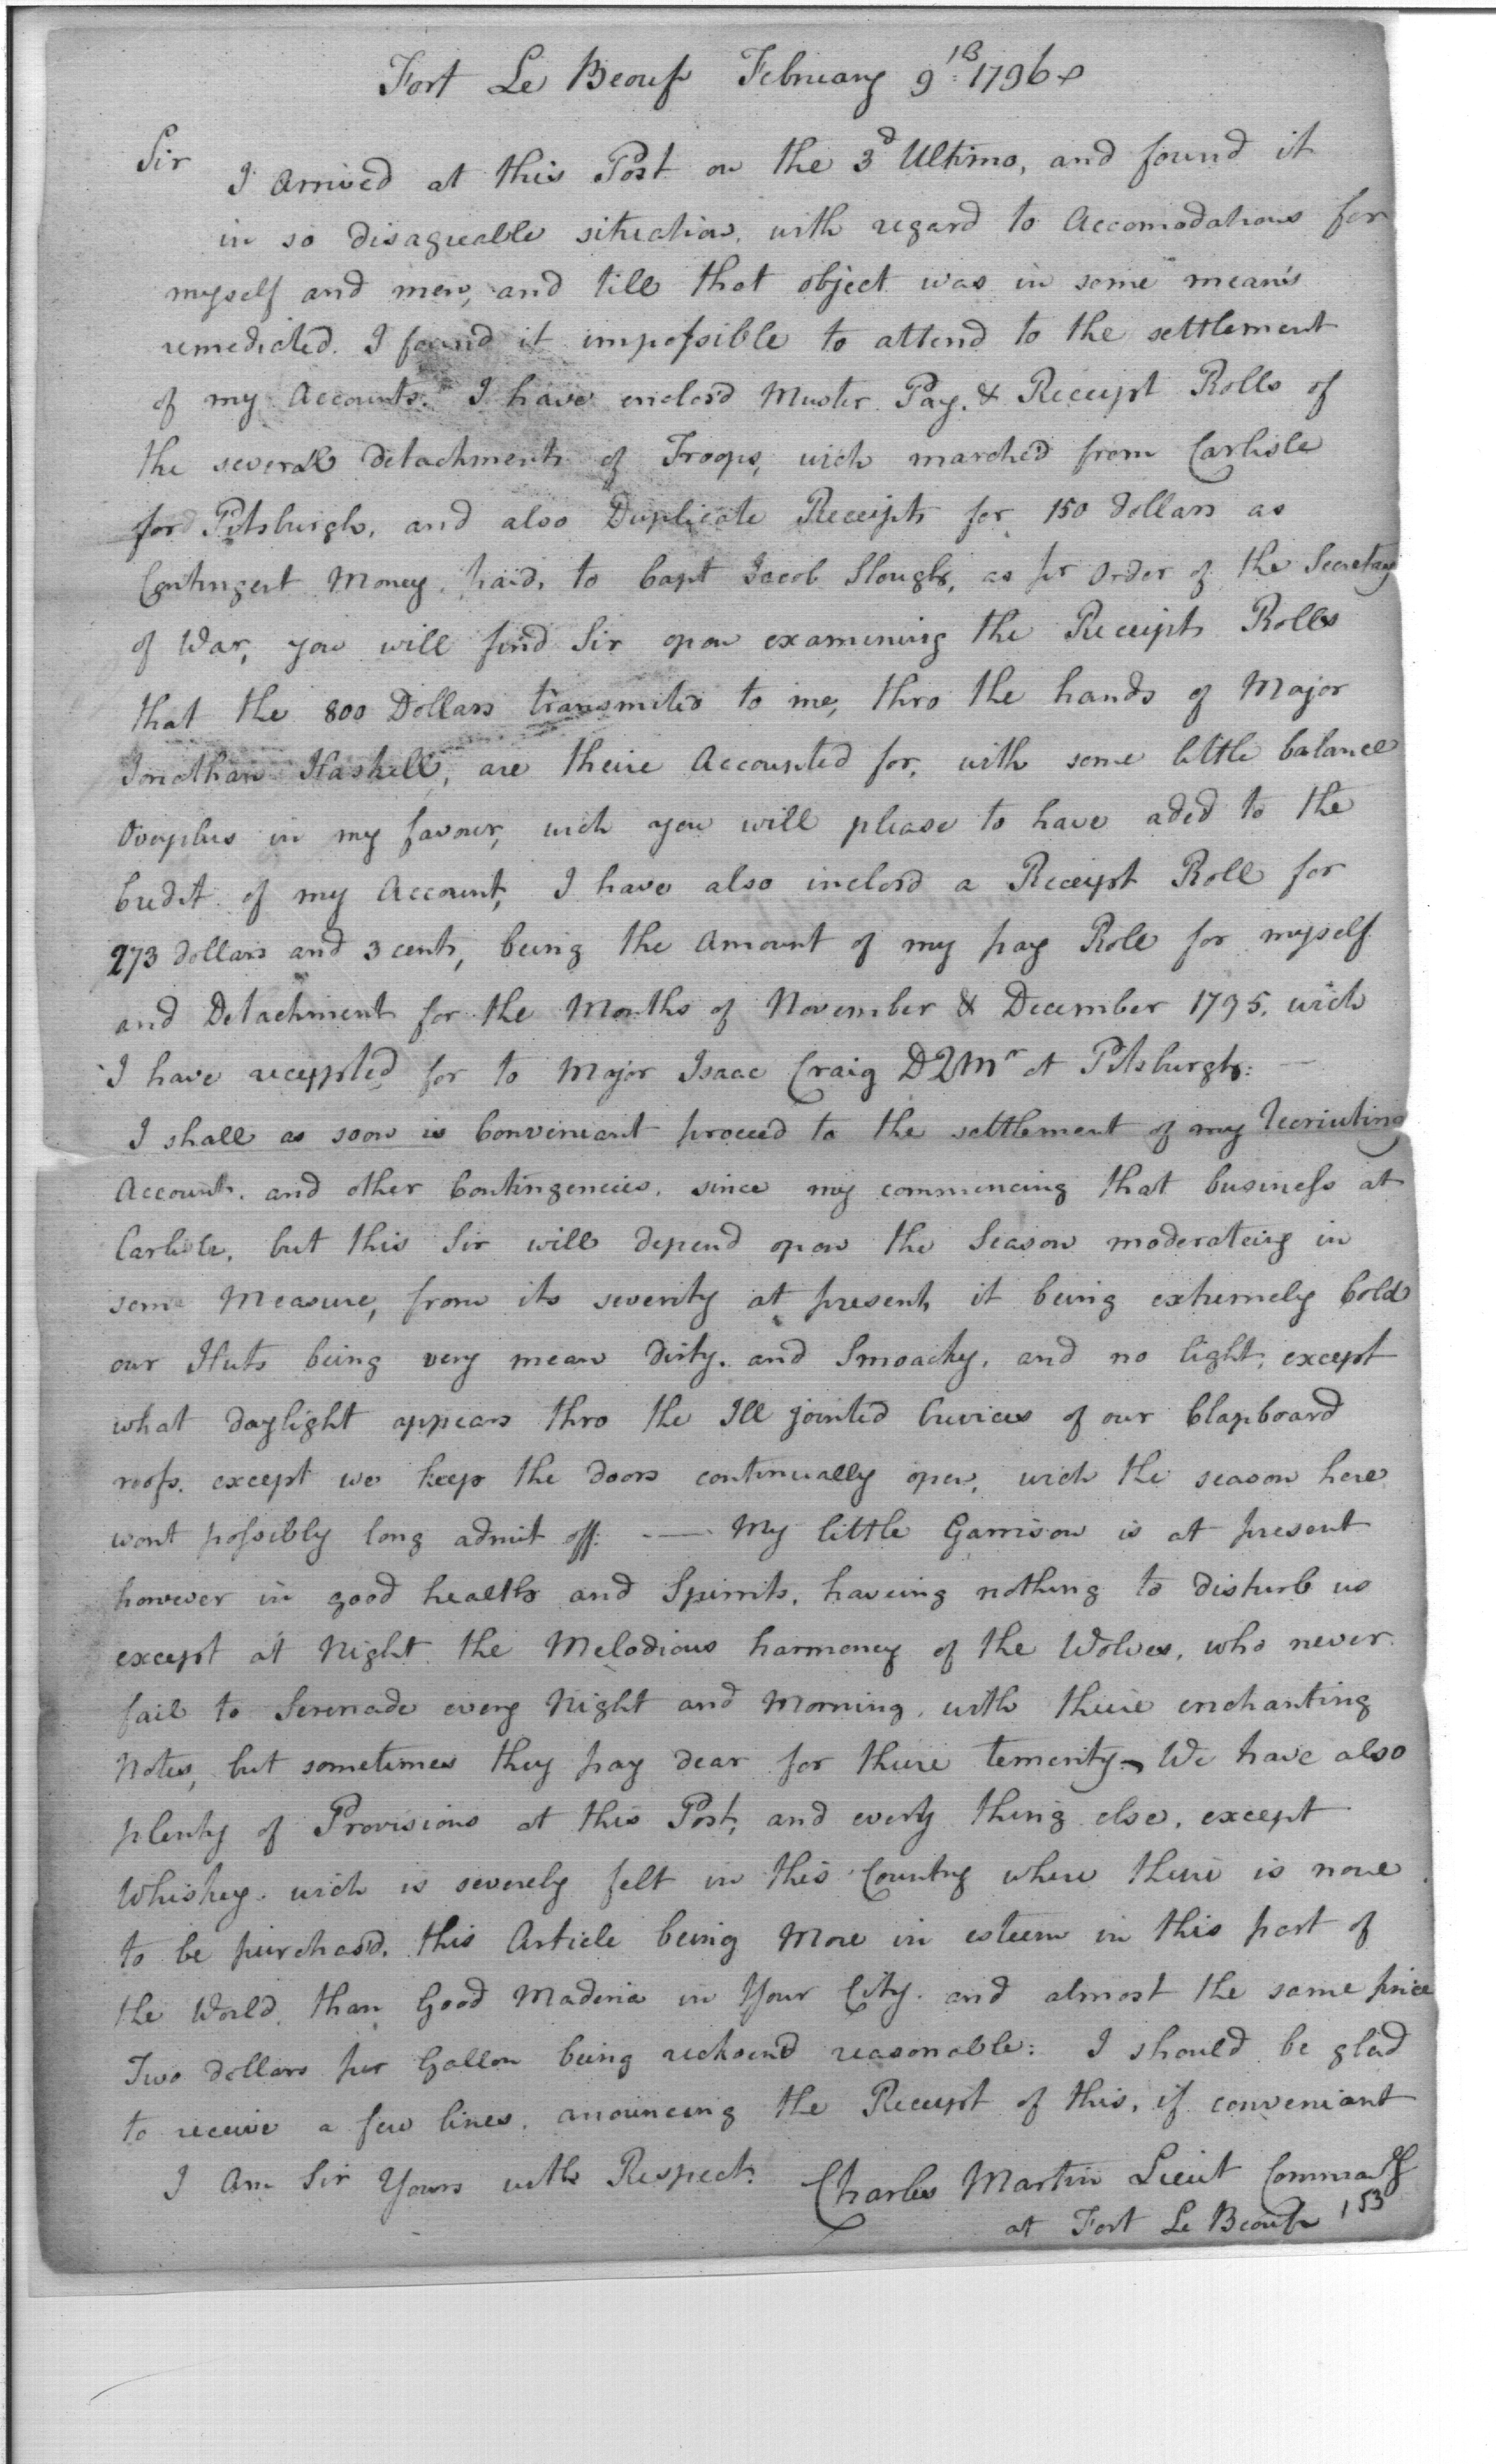 Fort Le Beouf February 9th 1796
Sir
I Arrived at this Post on the 3d Ultimo, and found it
in so disagreable situation, with regard to Accomodations for
myself and men, and till that object was in some means
remediated. I found it impossible to attend to the settlement
of my Accounts. I have enclosd Muster Pay. & Receipt Rolls of
the several Detachments of Troops, wich marched from Carlisle
for Pitsburgh, and also Duplicate Receipts for 150 dollars as
Contingent Money, paid, to Capt Jacob Slough, as pr Order of the Secretary
of War, you will find Sir opon examining the Receipts Rolls
that the 800 Dollars transmited to me, thro the hands of Major
Jonathan Haskell, are theire Accounted for, with some little balance
Overplus in my favour, wich you will please to have aded to the
Credit of my Account, I have also inclosd a Receipt Roll for
273 dollars and 3 cents, being the Amount of my pay Role for myself
and Detachment for the Months of November & December 1795. wich
I have receppted for to Major Isaac Craig DQMr at Pitsburgh:
I shall as soon as Conveniant proceed to the settlement of my Recriuting
Accounts. and other Contingencies, since my commencing that business at
Carlisle, but this Sir will depend opon the Season moderateing in
some Measure, from its severity at present, it being extremely Cold
our Huts being very mean Dirty. and Smoacky, and no light, except
what daylight appears thro the Ill jointed Crevices of our Clapboard
roofs. except we keep the doors continually open, wich the season here
wont possibly long admit off: —— My little Garrison is at present
however in good health and Spirrits, haveing nothing to disturb us
except at Night the Melodious harmoney of the Wolves, who never
fail to Serenade every Night and Morning, with theire enchanting
Notes, but sometimes they pay dear for theire temerity - We have also
plenty of Provisions at this Post, and every thing else, except
Whiskey. wich is severely felt in this Country where there is none
to be purchasd. this Article being More in esteem in this part of
the World, than Good Maderia in Your City. and almost the same price
Two dollars per Gallon being recksend reasonable: I should be glad
to receive a few lines, anouncing the Receipt of this, if conveniant
I Am Sir Yours with Respect. Charles Martin Lieut Commadg
at Fort Le Beouf 153